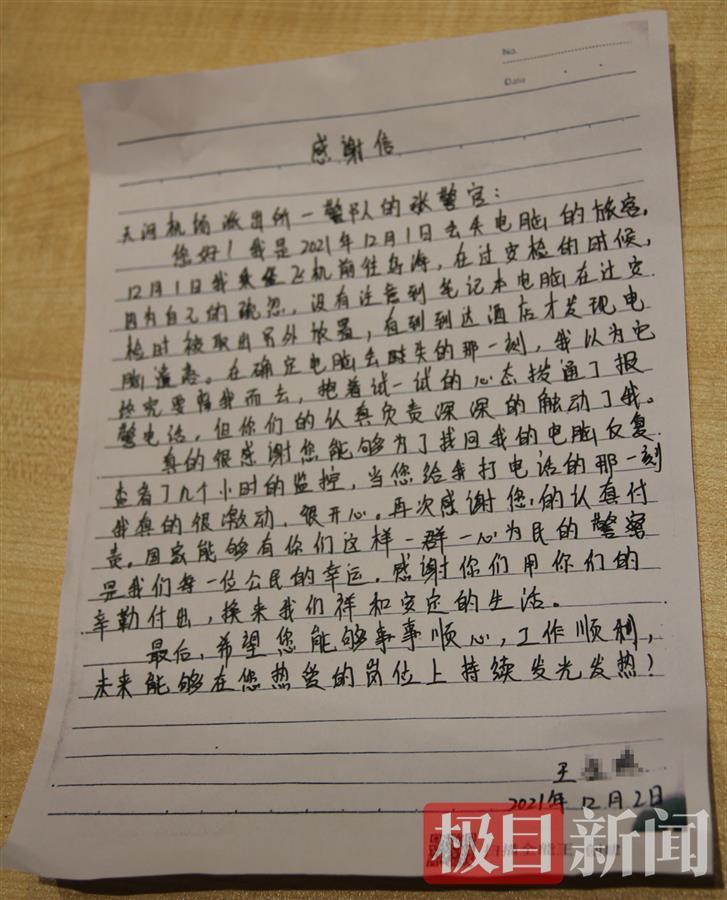 No.
Date
感谢信
天河机场派出所一警队的张警官:
您好!我是2021年12月1日丢失电脑的旅客,
12月1日我乘坐飞机前往乌海,在过安检的时候,
因为自己的疏忽,没有注意到笔记本电脑在过安
检时被取出另外放置,直到到达酒店才发现电
脑遗忘。在确定电脑丢失的那一刻,我以为它
终究要离我而去,抱着试一试的心态拨通了报
警电话,但你们的认真负责深深的触动了我。
真的很感谢您能够为了找回我的电脑反复
查看了几个小时的监控,当您给我打电话的那一刻
我真的很激动,很开心。再次感谢您的认真付
责。国家能够有你们这样一群一心为民的警察
是我们每一位公民的幸运,感谢你们用你们的
辛勤付出,换来我们祥和安定的生活。
最后,希望您能够事事顺心,工作顺利,
未来能够在您热爱的岗位上持续发光发热!
王
2021年12月2日
极目新闻